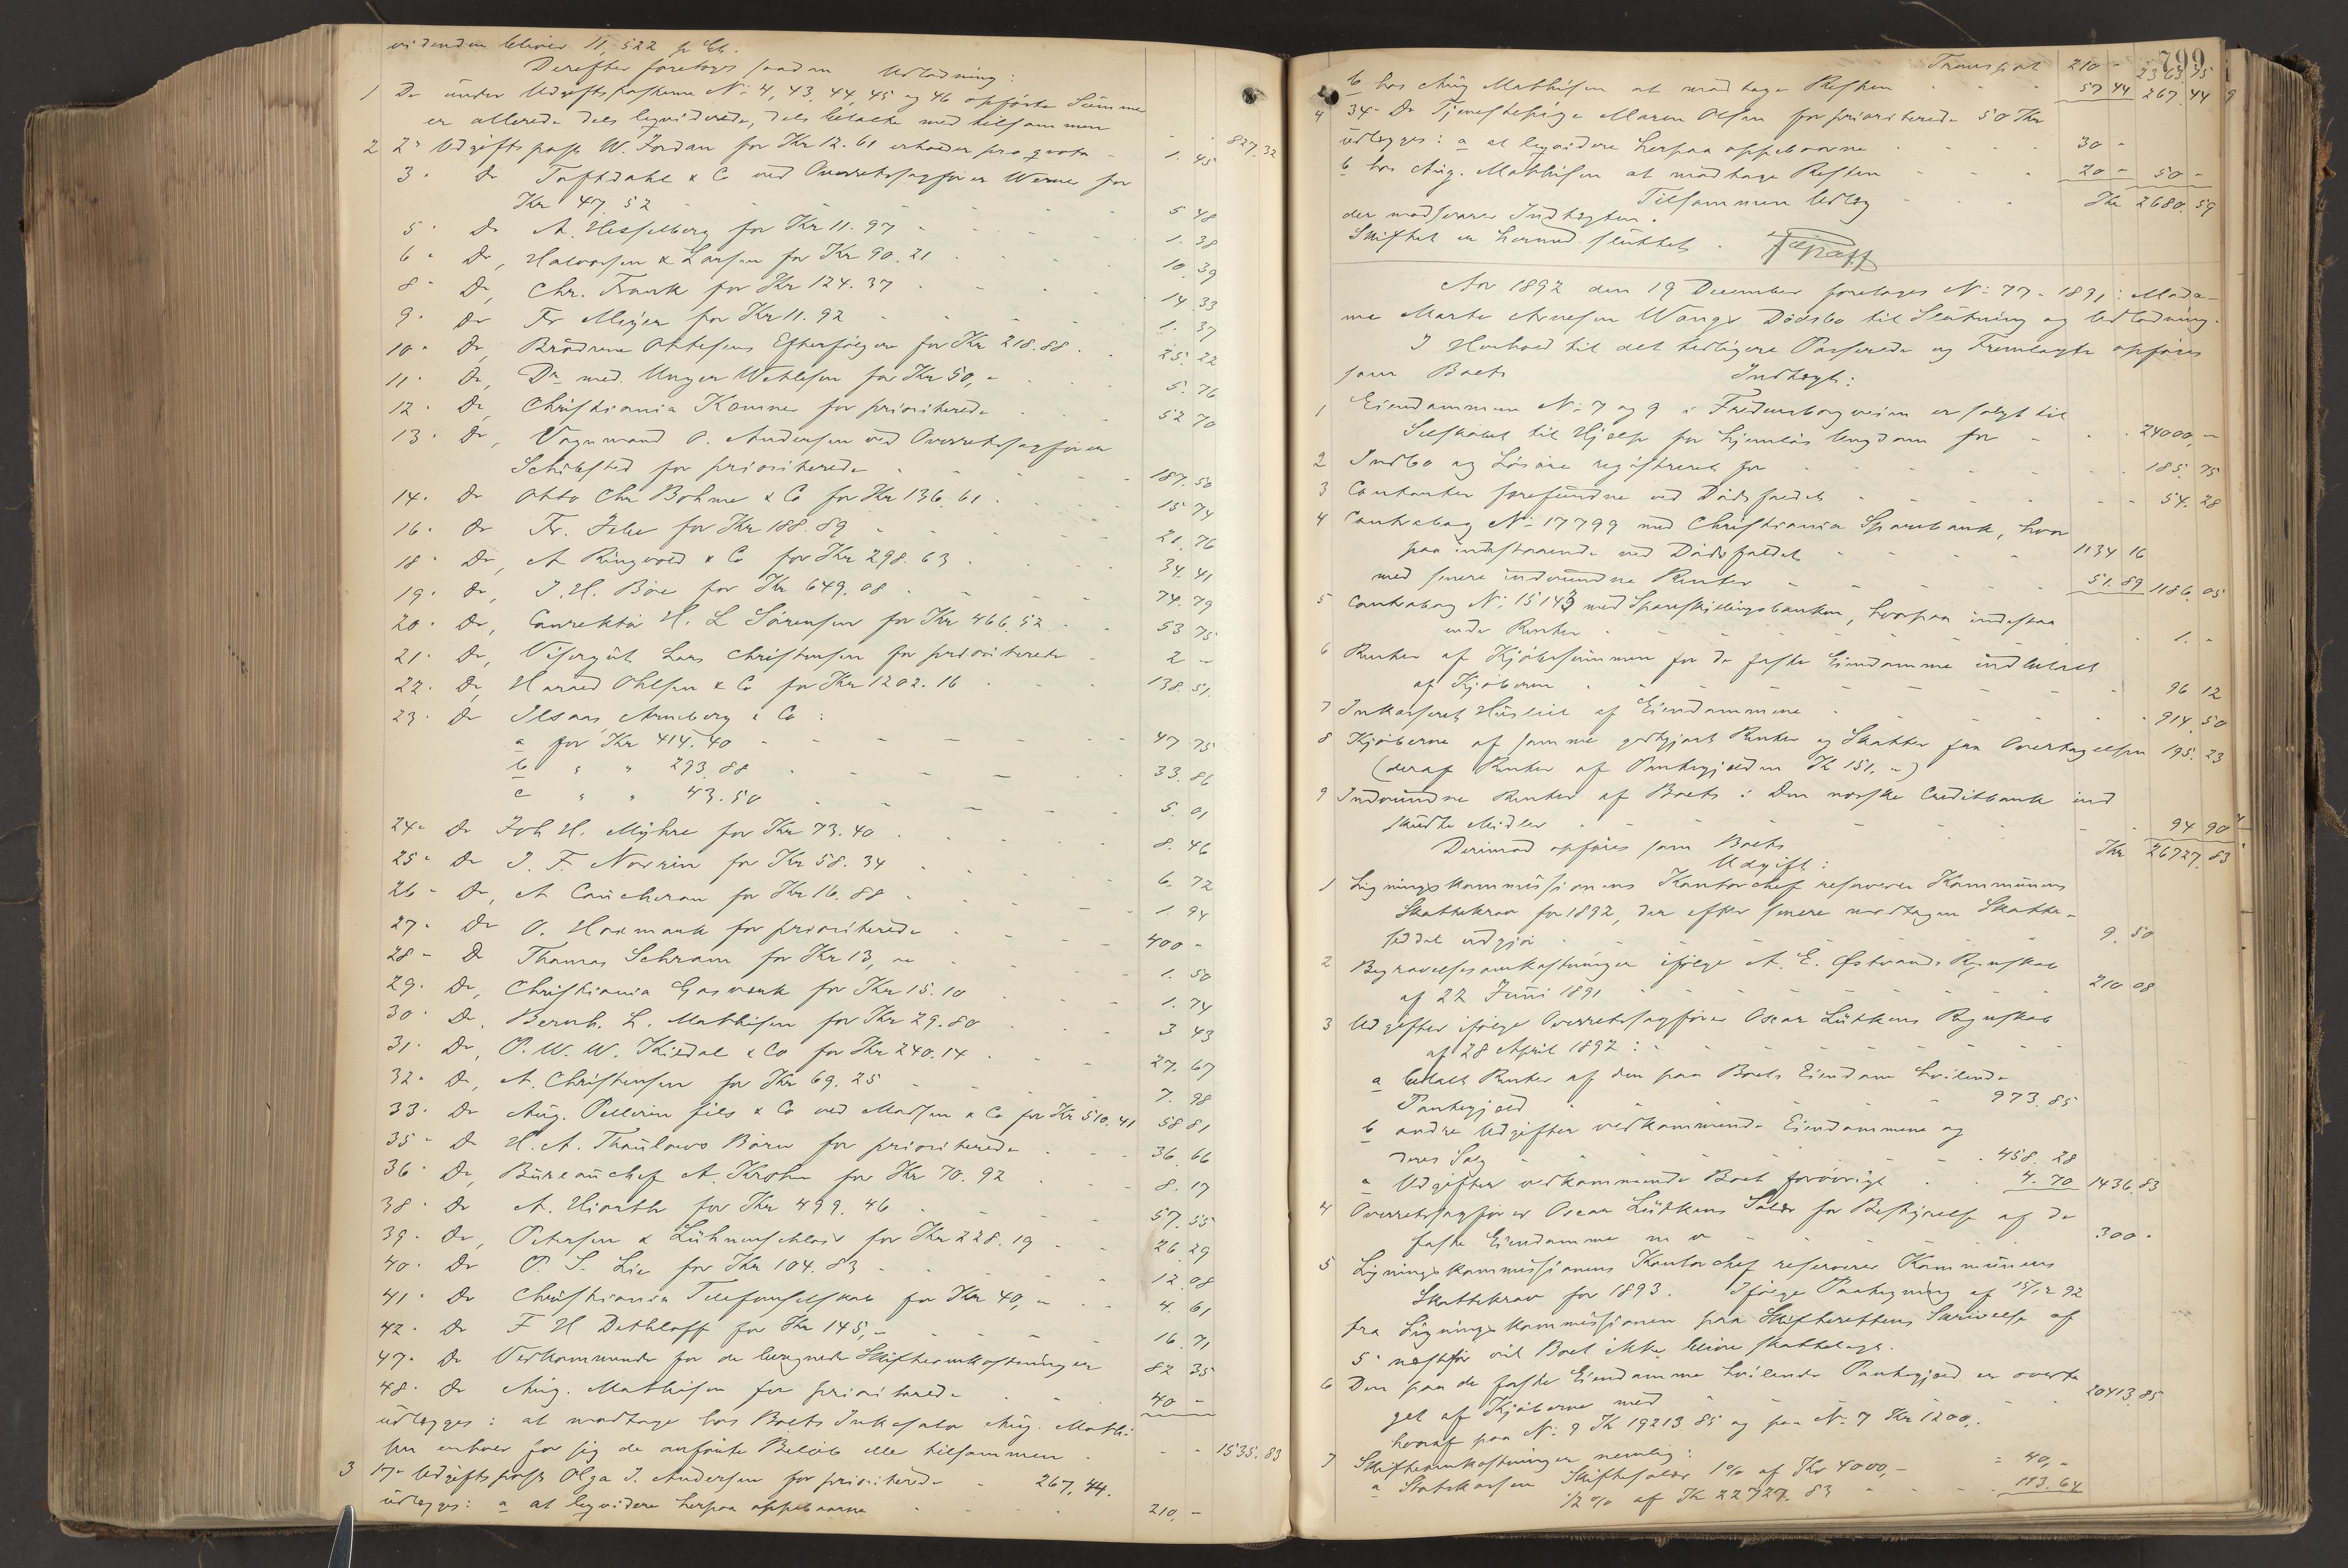 videnden bliver 11,522 pr Ct.
Derefter foretoges saadan Udlodning:
1 De under Udgiftsposterne No 4, 43, 44, 45 og 46 opførte Summer
er allerede dels liqviderede, dels betalte med tilsammen 827.32
2 2n Udgiftspost W. Jordan for Kr 12.61 erholder pro qvota 1.45
3 " Do Toftdahl & Co ved Overretssagfører Werner for
Kr 47.52 5 48
5 " Do A. Hesselberg for Kr 11.97 1.38
6 " Do, Halvorsen & Larsen for Kr 90.21 10.39
8 " Do, Chr. Frank for Kr 124.37 14.33
9 " Do Fr Meyer for Kr 11.92 1.37
10 " Do, Brødrene Ottesens Efterfølgere for Kr 218.88 25.22
11 " Do, Dr med. Unger Vetlesen for Kr 50,- 5.76
12 " Do, Christiania Komune for prioriterede 52 70
13 " Do, Vognmand O. Andersen ved Overretssagfører
Schibsted for prioriterede 187.50
14 " Do Otto Chr Bohme & Co for Kr 136.61 15 74
16 " Do Fr. Jebe for Kr 188.89 21.76
18 " Do, A Ringvold & Co for Kr 298.63 34.41
19 " Do, J. H. Böe for Kr 649.08 74.79
20 " Do, Conrektor H. L Sörensen for Kr 466.52 53 75
21 " Do, Visergut Lars Christensen for prioriterede 2 -
22 " Do, Harald Ohlsen & Co for Kr 1202.16 138.51
23 " Do Ilsaas Arneberg & Co:
a for Kr 414.40 47 75
b " " 293.88 33.86
c " " 43.50 5.01
24 " Do Joh H. Myhre for Kr 73.40 8.46
25 " Do J. F. Norrin for Kr 58.34 6.72
26 " Do, A Caucheron for Kr 16.88 1.94
27 " Do O. Hoxmark for prioriterede 400 -
28 " Do Thomas Schram for Kr 13,- 1.50
29 " Do, Christiania Gasværk for Kr 15.10 1.74
30 " Do, Bernh. L. Mathisen for Kr 29.80 3 43
31 " Do, P. W. W. Kildal & Co for Kr 240.14 27.67
32 " Do, A. Christensen for Kr 69.25 7.98
33 " Do Aug. Pellerin fils & Co ved Madsen & Co for Kr 510.41 58 81
35 " Do H. A. Thaulows Børn for prioriterede 36.66
36 " Do, Bureauchef A. Krohn for Kr 70.92 8.17
38 " Do A. Hiorth for Kr 499.46 57.55
39 " Do, Petersen & for Kr 228.19 26 29
40 " Do P. S. Lie for Kr 104.83 12 08
41 " Do Christiania Telefonselskab for Kr 40,- 4.61
42 " Do F H Dethloff for Kr 145,- 16.71
47 " Do Vedkommende for de beregnede Skifteomkostninger 82 35
48 " Do Aug. Mathisen for prioriterede 40 -
udlægges: at modtage hos Boets Inkasator Aug. Mathi-
sen enhver for sig de anførte Beløb eller tilsammen 1535.83
3 17n Udgiftspost Olga J. Andersen for prioriterede 267.44.
udlægges: a at liqvidere herpaa oppebaarne 210,-
799
Transport 210 - 2363.15
b hos Aug Mathisen at modtage Resten 57 44 267.44
4 34n Do Tjenestepige Maren Olsen for prioriterede 50 Kr
udlægges: a at liqvidere herpaa oppebaarne 30 -
b hos Aug. Mathisen at modtage Resten 20 - 50 -
Tilsammen Udlæg Kr 2680.59
der modsvarer Indtægten.
Skiftet er hermed sluttet.
Aar 1892 den 19 December foretoges No 77-1891: Mada-
me Marte Arnesen Wangs Dødsbo til Slutning og Udlodning.
I Henhold til det tidligere Passerede og Fremlagte opføres
som Boets Indtægt:
1 Eiendommene No 7 og 9 i Fredensborgveien er solgt til
Selskabet til Hjælp for hjemløs Ungdom for 24000,-
2 Indbo og Løsøre registreret for 185.75
3 Contanter forefundne ved Dødsfaldet 54.28
4 Contrabog No 17799 med Christiania Sparebank, hvor
paa indestaaende ved Dødsfaldet 1134 16
med senere indvundne Renter 51.89 1186.05
5 Contrabog No 15143 med Spareskillingsbanken, hvorpaa indestaa
ende Renter 1.-
6 Renter af Kjøbesummen for de faste Eiendomme indbetalt
af Kjøberen 96 12
7 Inkasseret Husleie af Eiendommene 914.50
8 Kjøberne af samme godtgjort Renter og Skatter fra Overtagelsen 195.23
(deraf Renter af Pantegjælden Kr 151,-)
9 Indvundne Renter af Boets i Den norske Creditbank ind
skudte Midler 94 90
Kr 26727.83
Derimod opføres som Boets
Udgift:
1 Ligningskommissionens Kontorchef reserverer Kommunens
Skattekrav for 1892, der efter senere modtagen Skatte-
seddel udgjør 9.50
2 Begravelsesomkostninger ifølge A. E. Østvands Regnskab
af 22 Juni 1891 210 08
3 Udgifter ifølge Overretssagfører Oscar Lütkens Regnskab
af 28 April 1892:
a betalt Renter af den paa Boets Eiendom hvilende
Pantegjæld 973.85
b andre Udgifter vedkommende Eiendommene og
deres Salg 458.28
c Udgifter vedkommende Boet forøvrigt 4.70 1436.83
4 Overretssagfører Oscar Lütkens Salær for Bestyrelse af de
faste Eiendomme m v 300 -
5 Ligningskommissionens Kontorchef reserverer Kommunens
Skattekrav for 1893. Ifølge Paategning af 15/12 92
fra Ligningskommissionen paa Skifterettens Skrivelse af
5' næstfør vil Boet ikke blive skattelagt.
6 Den paa de faste Eiendomme hvilende Pantegjæld er overta
get af Kjøberne med 20413.85
hvoraf paa No 9 Kr 19213.85 og paa No 7 Kr 1200,-
7 Skifteomkostninger nemlig:
a Statskassen Skiftesalær 1% af Kr 4000,- = 40,-
1/2% af Kr 22727.83 113.64